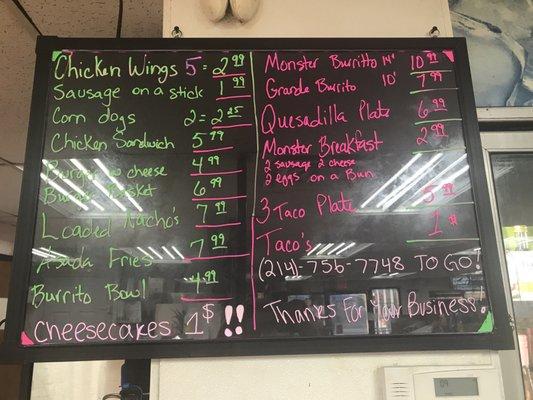 Chicken Wings 5 = 2.99
Sausage on a stick 1.99
Corn dogs 2 = 2.25
Chicken Sandwich 5.99
Burger w cheese 4.99
Burger Basket 6.99
Loaded Nacho's 7.99
Asada Fries 7.99
Burrito Bowl 4.99
Cheesecakes 1$ !!
Monster Burritto 14" 10.99
Grande Burrito 10' 7.99
Quesadilla Plate 6.99
Monster Breakfast 2.99
2 sausage 2 cheese
2 eggs on a Bun
3 Taco Plate 5.99
Taco's 1$
(214)-756-7748 TO GO!
Thanks For Your Business.